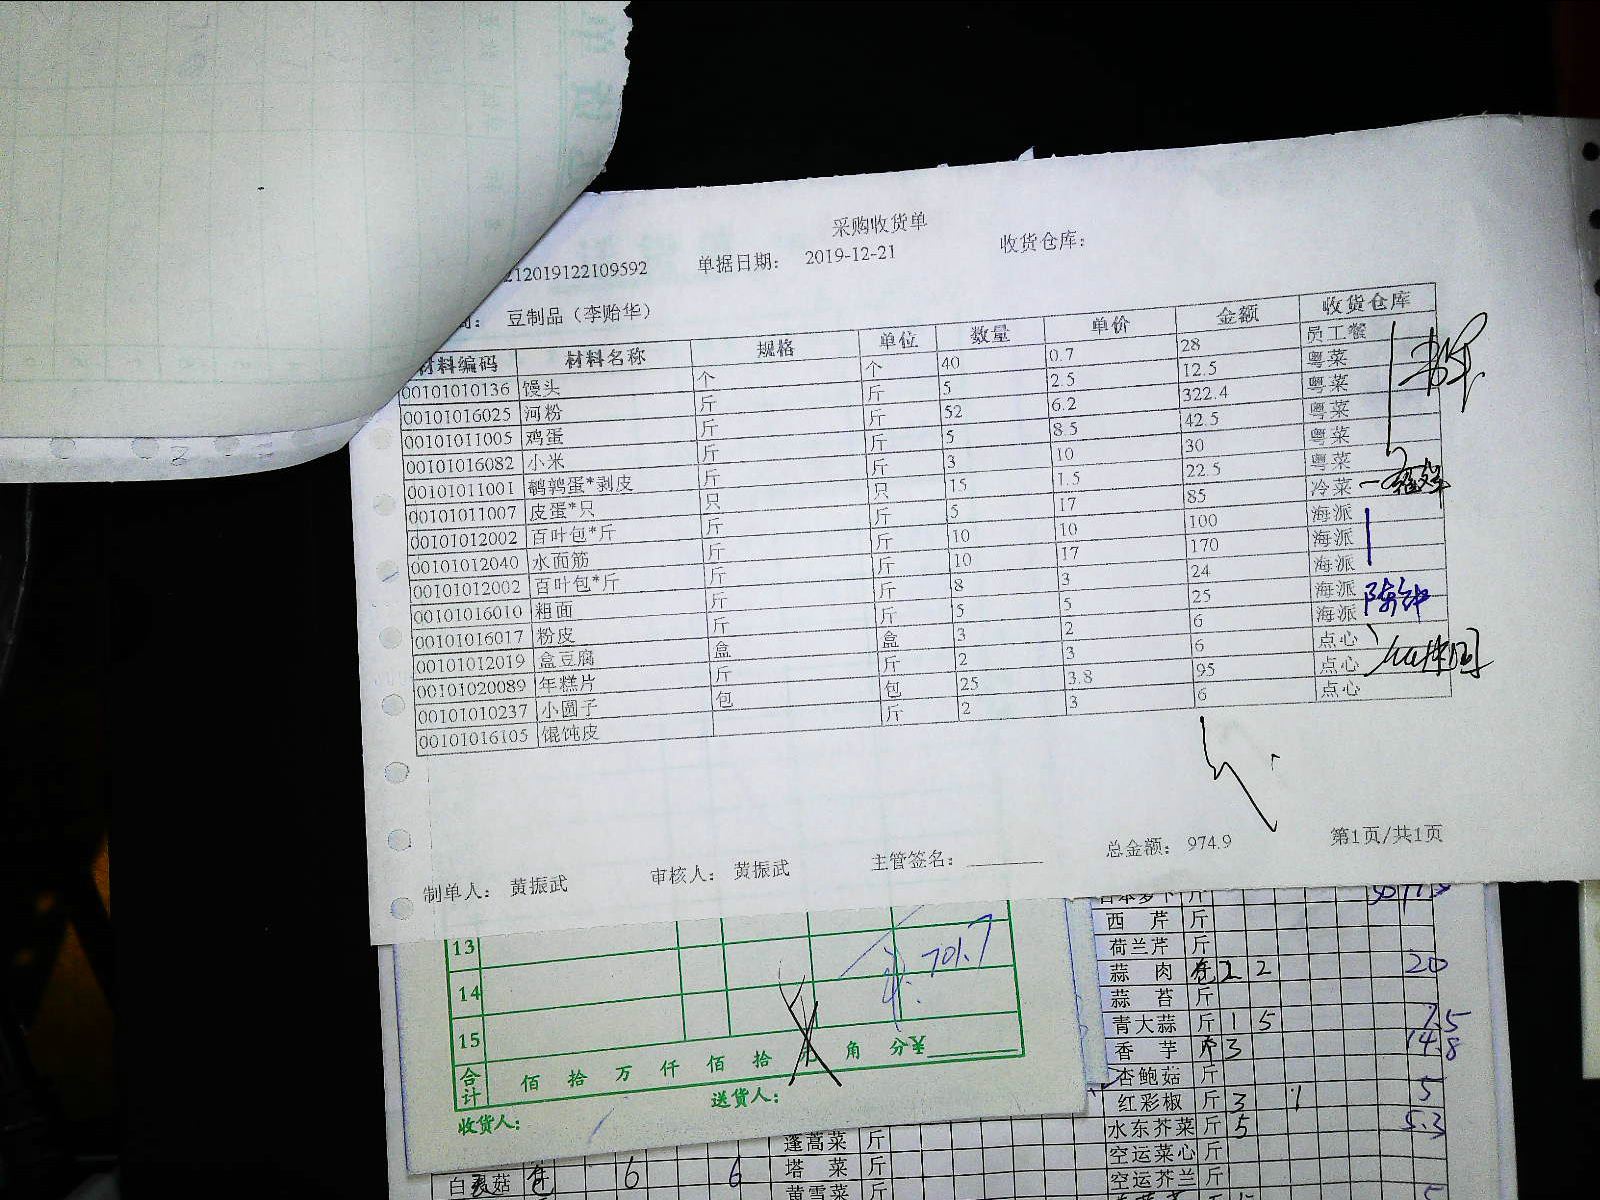 采购收货单
212019122109592 单据日期： 2019-12-21 收货仓库：
商： 豆制品（李贻华）
材料编码 材料名称 规格 单位 数量 单价 金额 收货仓库
00101010136 馒头 个 个 40 0.7 28 员工餐
00101016025 河粉 斤 斤 5 2.5 12.5 粤菜
00101011005 鸡蛋 斤 斤 52 6.2 322.4 粤菜
00101016082 小米 斤 斤 5 8.5 42.5 粤菜
00101011001 鹌鹑蛋*剥皮 斤 斤 3 10 30 粤菜
00101011007 皮蛋*只 只 只 15 1.5 22.5 粤菜
00101012002 百叶包*斤 斤 斤 5 17 85 冷菜
00101012040 水面筋 斤 斤 10 10 100 海派
00101012002 百叶包*斤 斤 斤 10 17 170 海派
00101016010 粗面 斤 斤 8 3 24 海派
00101016017 粉皮 斤 斤 5 5 25 海派
00101012019 盒豆腐 盒 盒 3 2 6 海派
00101020089 年糕片 斤 斤 2 3 6 点心
00101010237 小圆子 包 包 25 3.8 95 点心
00101016105 馄饨皮 斤 2 3 6 点心
制单人： 黄振武 审核人： 黄振武 主管签名： 总金额： 974.9 第1页/共1页
13 701.7
14
15
合计 佰 拾 万 仟 佰 拾 角 分 ¥
收货人： 送货人：
西芹 斤
荷兰芹 斤
蒜肉 2 2 20
蒜苔 斤
青大蒜 斤 1 5 7.5
香芋 斤 3 14.8
杏鲍菇 斤
红彩椒 斤 3 1 5
水东芥菜 斤 5 5.3
空运菜心 斤
空运芥兰 斤
蓬蒿菜 斤
塔菜 斤
黄雪菜 斤
6 6